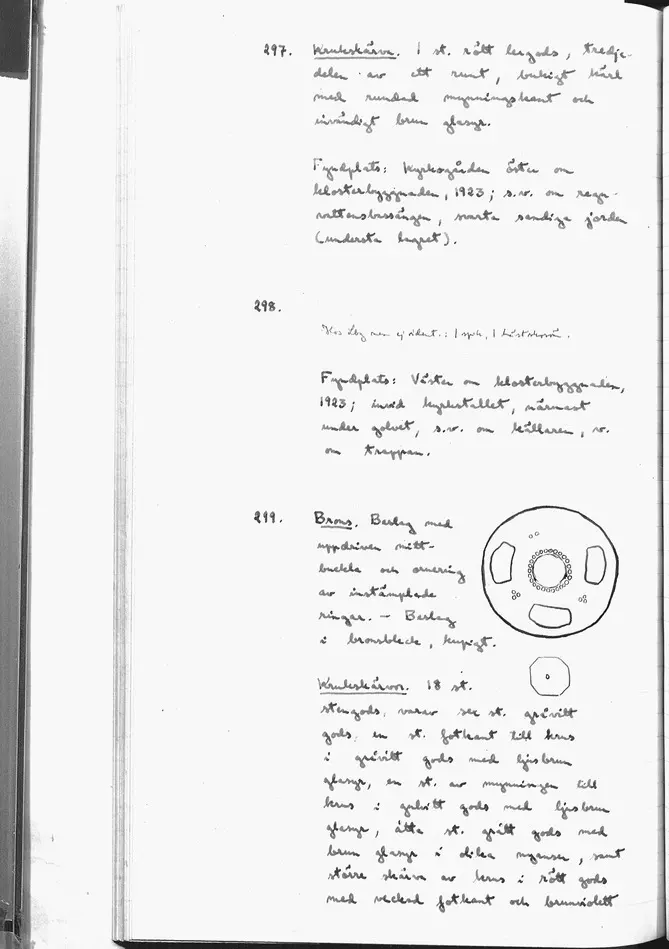 297. Krukskärva. 1 st. rött lergods, tredje-
delen av ett runt, bukigt kärl
med rundad mynningskant och
invändigt brun glasyr.
Fyndplats: Kyrkogården öster om
klosterbyggnaden, 1923; s.v. om regn-
vattensbassängen, svarta sandiga jorden
(understa lagret).
298.
ej ident.: 1 spik, 1
Fyndplats: Väster om klosterbyggnaden,
1923; invid kyrkstallet, närmast
under golvet, s.v. om källaren, v.
om trappan.
299. Brons. Beslag med
uppdriven mitt-
buckla och ornering
av instämplade
ringar. - Beslag
i bronsbleck, kupigt.
Krukskärvor. 18 st.
stengods, varav sex st. gråvitt
gods, en st. fotkant till krus
i gråvitt gods med ljusbrun
glasyr, en st. av mynningen till
krus i gulvitt gods med ljusbrun
glasyr, åtta st. grått gods med
brun glasyr i olika nyanser, samt
större skärva av krus i rött gods
med veckad fotkant och brunviolett